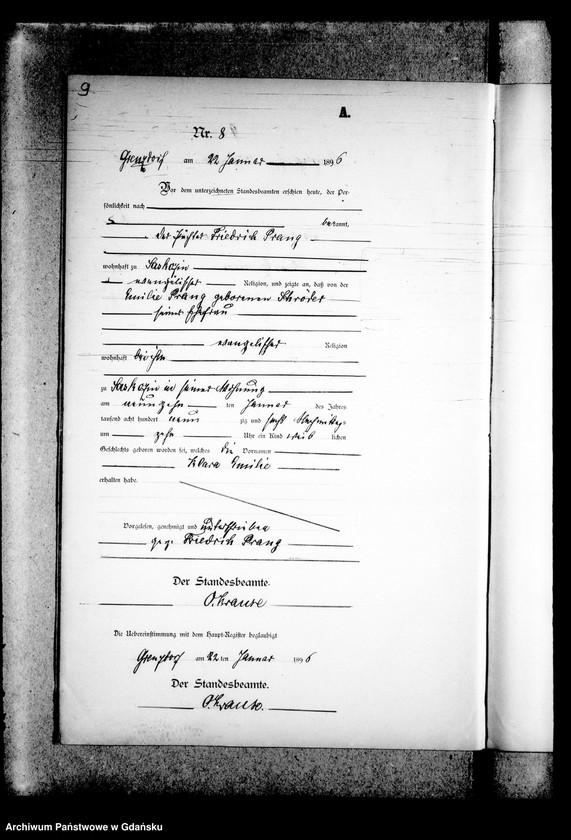 9
A.
Nr. 8
Grenzdorf am 22 Januar 1896
Vor dem unterzeichneten Standesbeamten erschien heute, der Per-
sönlichkeit nach
bekannt,
der Pächter Friedrich Prang
wohnhaft zu Saskozin
evangelischer Religion, und zeigte an, daß von der
Emilie Prang geborenen Schröder
seiner Ehefrau
evangelischer Religion
wohnhaft bei ihm
zu Saskozin in seiner Wohnung
am neunzehn ten Januar des Jahres
tausend acht hundert neun zig und sechs Nachmittags
um zehn Uhr ein Kind weib lichen
Geschlechts geboren worden sei, welches die Vornamen
Klara Emilie
erhalten habe.
Vorgelesen, genehmigt und unterschrieben
gez. Friedrich Prang
Der Standesbeamte.
O. Krause
Die Uebereinstimmung mit dem Haupt-Register beglaubigt
Grenzdorf am 22 ten Januar 1896
Der Standesbeamte.
O. Krause.
Archiwum Państwowe w Gdańsku